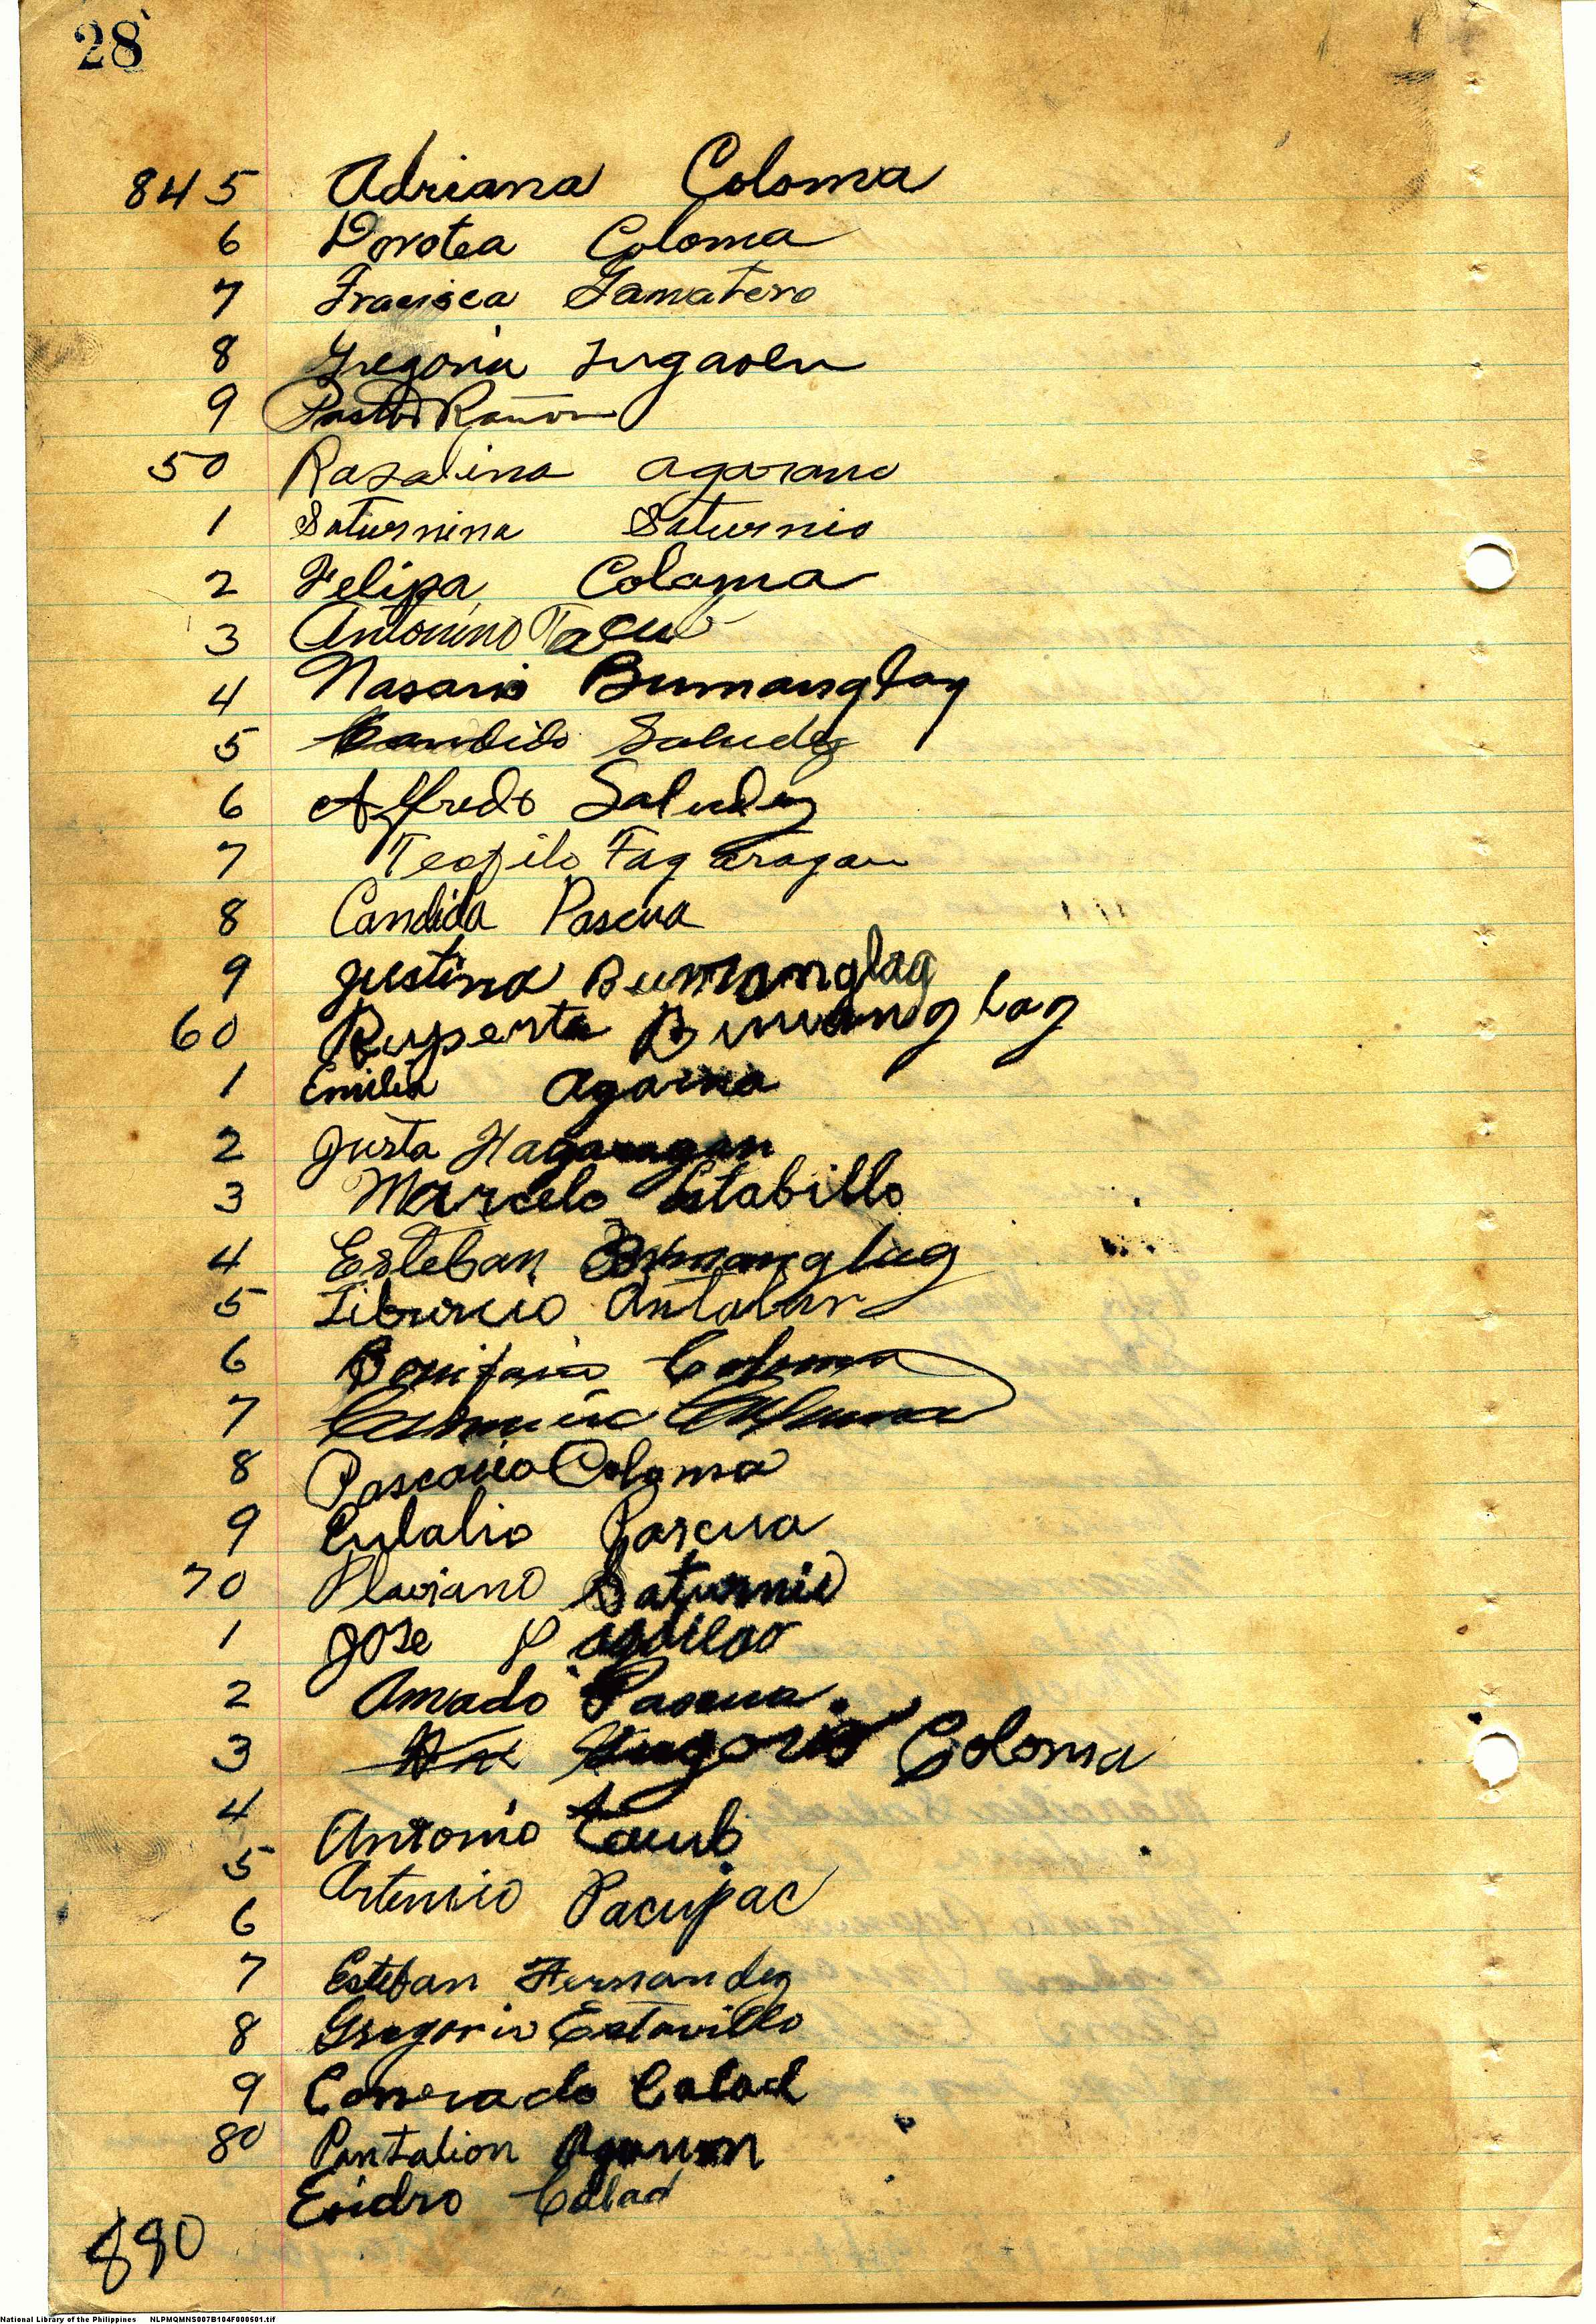 28
845 Adriana Coloma
6 Dorotea Coloma
7 Fracisca Gamatero
8 Gregoria
9 Pastor Rañon
50 Rosalina agarano
1 Saturnina Saturnio
2 Felipa Coloma
3 Antonino Tacub
4 Nasario Bumanglag
5 Candido Saludez
6 Alfredo Saludez
7 Teofilo Fagaragan
8 Candida Pascua
9 Justina Bumanglag
60 Ruperta Bumanglag
1 Emilia
2 Justa Hagaragan
3 Marcelo Estabillo
4 Esteban Bumanglag
5 Tiburcio Antalan
6 Bonifacio Coloma
7 Coloma
8 Coloma
9 Eulalio Pascua
70 Flaviano Saturnio
1 Jose
2 Amado Pascua
3 Gregorio Coloma
4 Antonio Tacub
5 Artemio Pacupac
6
7 Esteban Hernandez
8 Gregorio Estavillo
9 Conrado Calad
80 Pantalion
Esidro Calad
890
National Library of the Philippines NLPMQMNS007B104F000501.tif